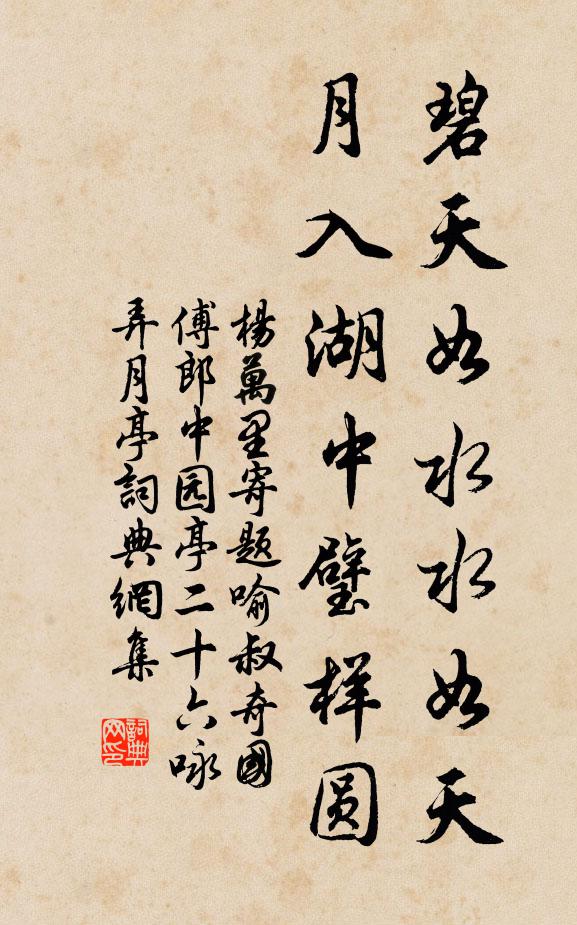 碧天如水水如天
月入湖中璧样圆
楊萬里寄題喻叔奇國
傅郎中园亭二十六咏
弄月亭詞典網集
詞典网印